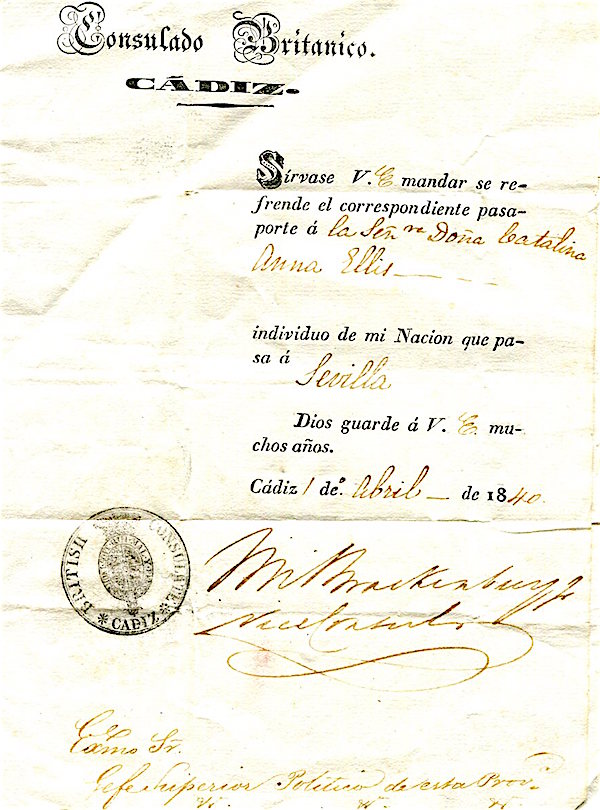 Consulado Britanico.
CÁDIZ.
Sírvase V. E mandar se re-
frende el correspondiente pasa-
porte á la Señ.ra Doña Catalina
Anna Ellis
individuo de mi Nacion que pa-
sa á
Sevilla
Dios guarde á V. E. mu-
chos años.
Cádiz 1 de. Abril de 1840
BRITISH CONSULATE
* CADIZ *
Wm Brackenbury
Vice Consul
Exmo Sr.
Gefe Superior Politico de esta Prov.